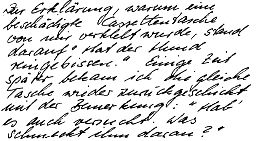 Zur Erklärung, warum eine
beschädigte Cassettentasche
von mir verklebt wurde, stand
darauf "Hat der Hund
reingebissen." Einige Zeit
später bekam ich die gleiche
Tasche wieder zurückgeschickt
mit der Bemerkung: "Hab'
es auch versucht. Was
schmeckt ihm daran?"